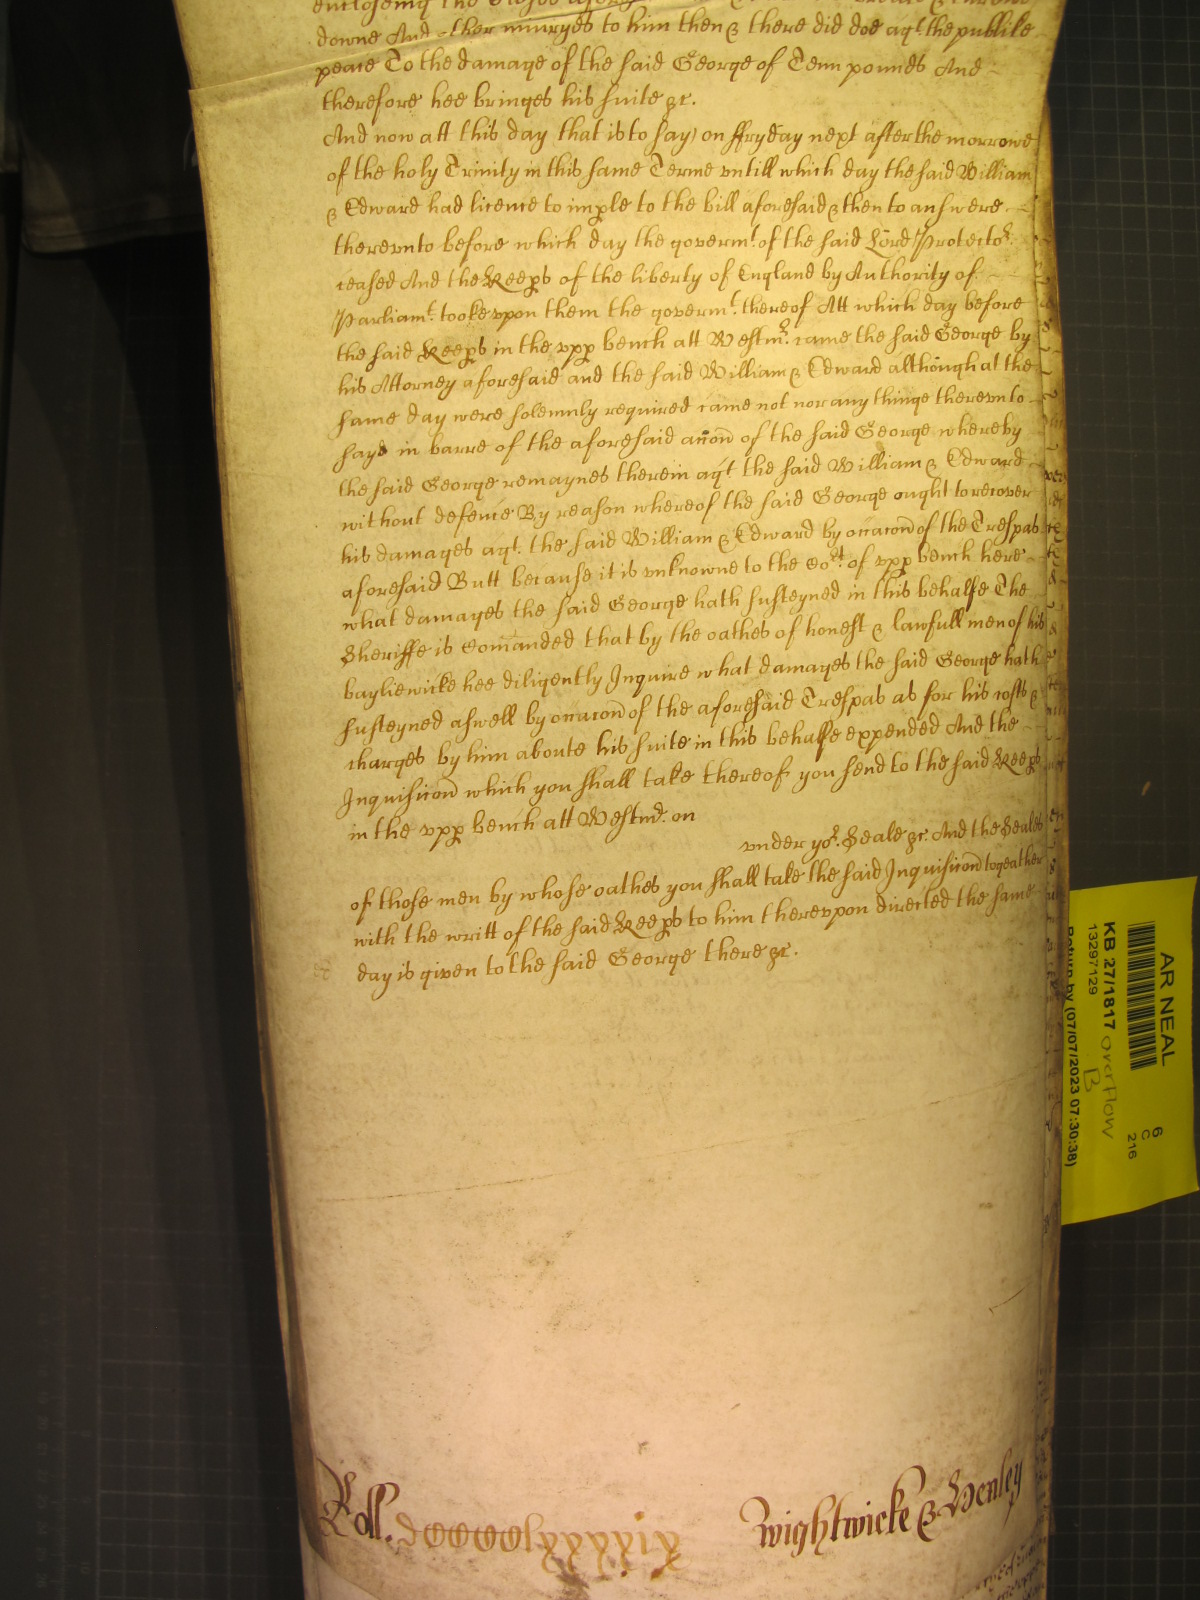 enclosing the Closes afores
downe And other iniuryes to him then & there did doe agt. the publike
peace To the damage of the said George of Tenn pounds And
therefore hee bringes his suite &c.
And now att this day that is to say) on ffryday next after the morrowe
of the holy Trinity in this same Terme vntill which day the said William
& Edward had licence to imple to the bill aforesaid & then to answere
therevnto before which day the govermt. of the said Lord Protector.
ceased And the Keeps of the liberty of England by Authority of
Parliamt. tooke vpon them the govermt. thereof Att which day before
the said Keeps in the vpp bench att Westmr. came the said George by
his Attorney aforesaid and the said William & Edward although at the
same day were solemnly required came not nor any thinge therevnto
sayd in barre of the aforesaid accon of the said George whereby
the said George remaynes therein agt. the said William & Edward
without defence By reason whereof the said George ought to recover
his damages agt. the said William & Edward by occacon of the Trespas
aforesaid Butt because it is vnknowne to the Cort. of vpp bench here
what damages the said George hath susteyned in this behalfe The
Sheriffe is Comanded that by the oathes of honest & lawfull men of his
bayliewicke hee diligently Inquire what damages the said George hath
susteyned aswell by occacon of the aforesaid Trespas as for his costs &
charges by him aboute his suite in this behalfe expended And the
Inquisicon which you shall take thereof you send to the said Keeps
in the vpp bench att Westmr. on
vnder yor. Seale &c. And the Seales
of those men by whose oathes you shall take the said Inquisicon togeather
with the writt of the said Keeps to him therevpon directed the same
day is given to the said George there &c.
Roll. dcccclxxxxixx
Wightwicke & Henley
AR NEAL
KB 27/1817 overflow
B
13297129
Return by (07/07/2023 07:30:38)
6
C
216